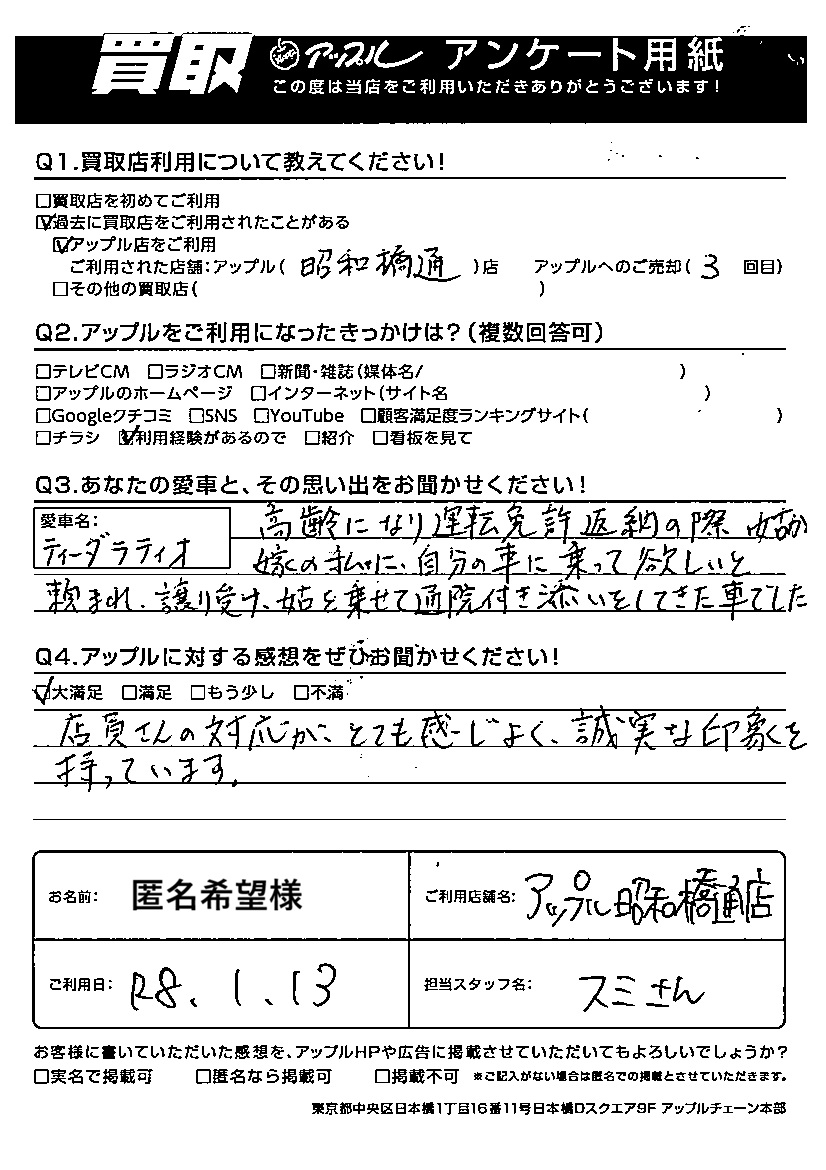 買取 アップル アンケート用紙
この度は当店をご利用いただきありがとうございます!
Q1.買取店利用について教えてください!
□買取店を初めてご利用
☑過去に買取店をご利用されたことがある
☑アップル店をご利用
ご利用された店舗:アップル( 昭和橋通 )店 アップルへのご売却( 3 回目)
□その他の買取店( )
Q2.アップルをご利用になったきっかけは?(複数回答可)
□テレビCM □ラジオCM □新聞・雑誌(媒体名/ )
□アップルのホームページ □インターネット(サイト名 )
□Googleクチコミ □SNS □YouTube □顧客満足度ランキングサイト( )
□チラシ ☑利用経験があるので □紹介 □看板を見て
Q3.あなたの愛車と、その思い出をお聞かせください!
愛車名:
ティーダラティオ
高齢になり運転免許返納の際、姑が
嫁の私に、自分の車に乗って欲しいと
頼まれ、譲り受け、姑を乗せて通院付き添いをしてきた車でした
Q4.アップルに対する感想をぜひお聞かせください!
☑大満足 □満足 □もう少し □不満
店員さんの対応が、とても感じよく、誠実な印象を
持っています。
お名前: 匿名希望様 ご利用店舗名: アップル昭和橋通店
ご利用日: R8.1.13 担当スタッフ名: スミさん
お客様に書いていただいた感想を、アップルHPや広告に掲載させていただいてもよろしいでしょうか?
□実名で掲載可 □匿名なら掲載可 □掲載不可 ※ご記入がない場合は匿名での掲載とさせていただきます。
東京都中央区日本橋1丁目16番11号日本橋Dスクエア9F アップルチェーン本部